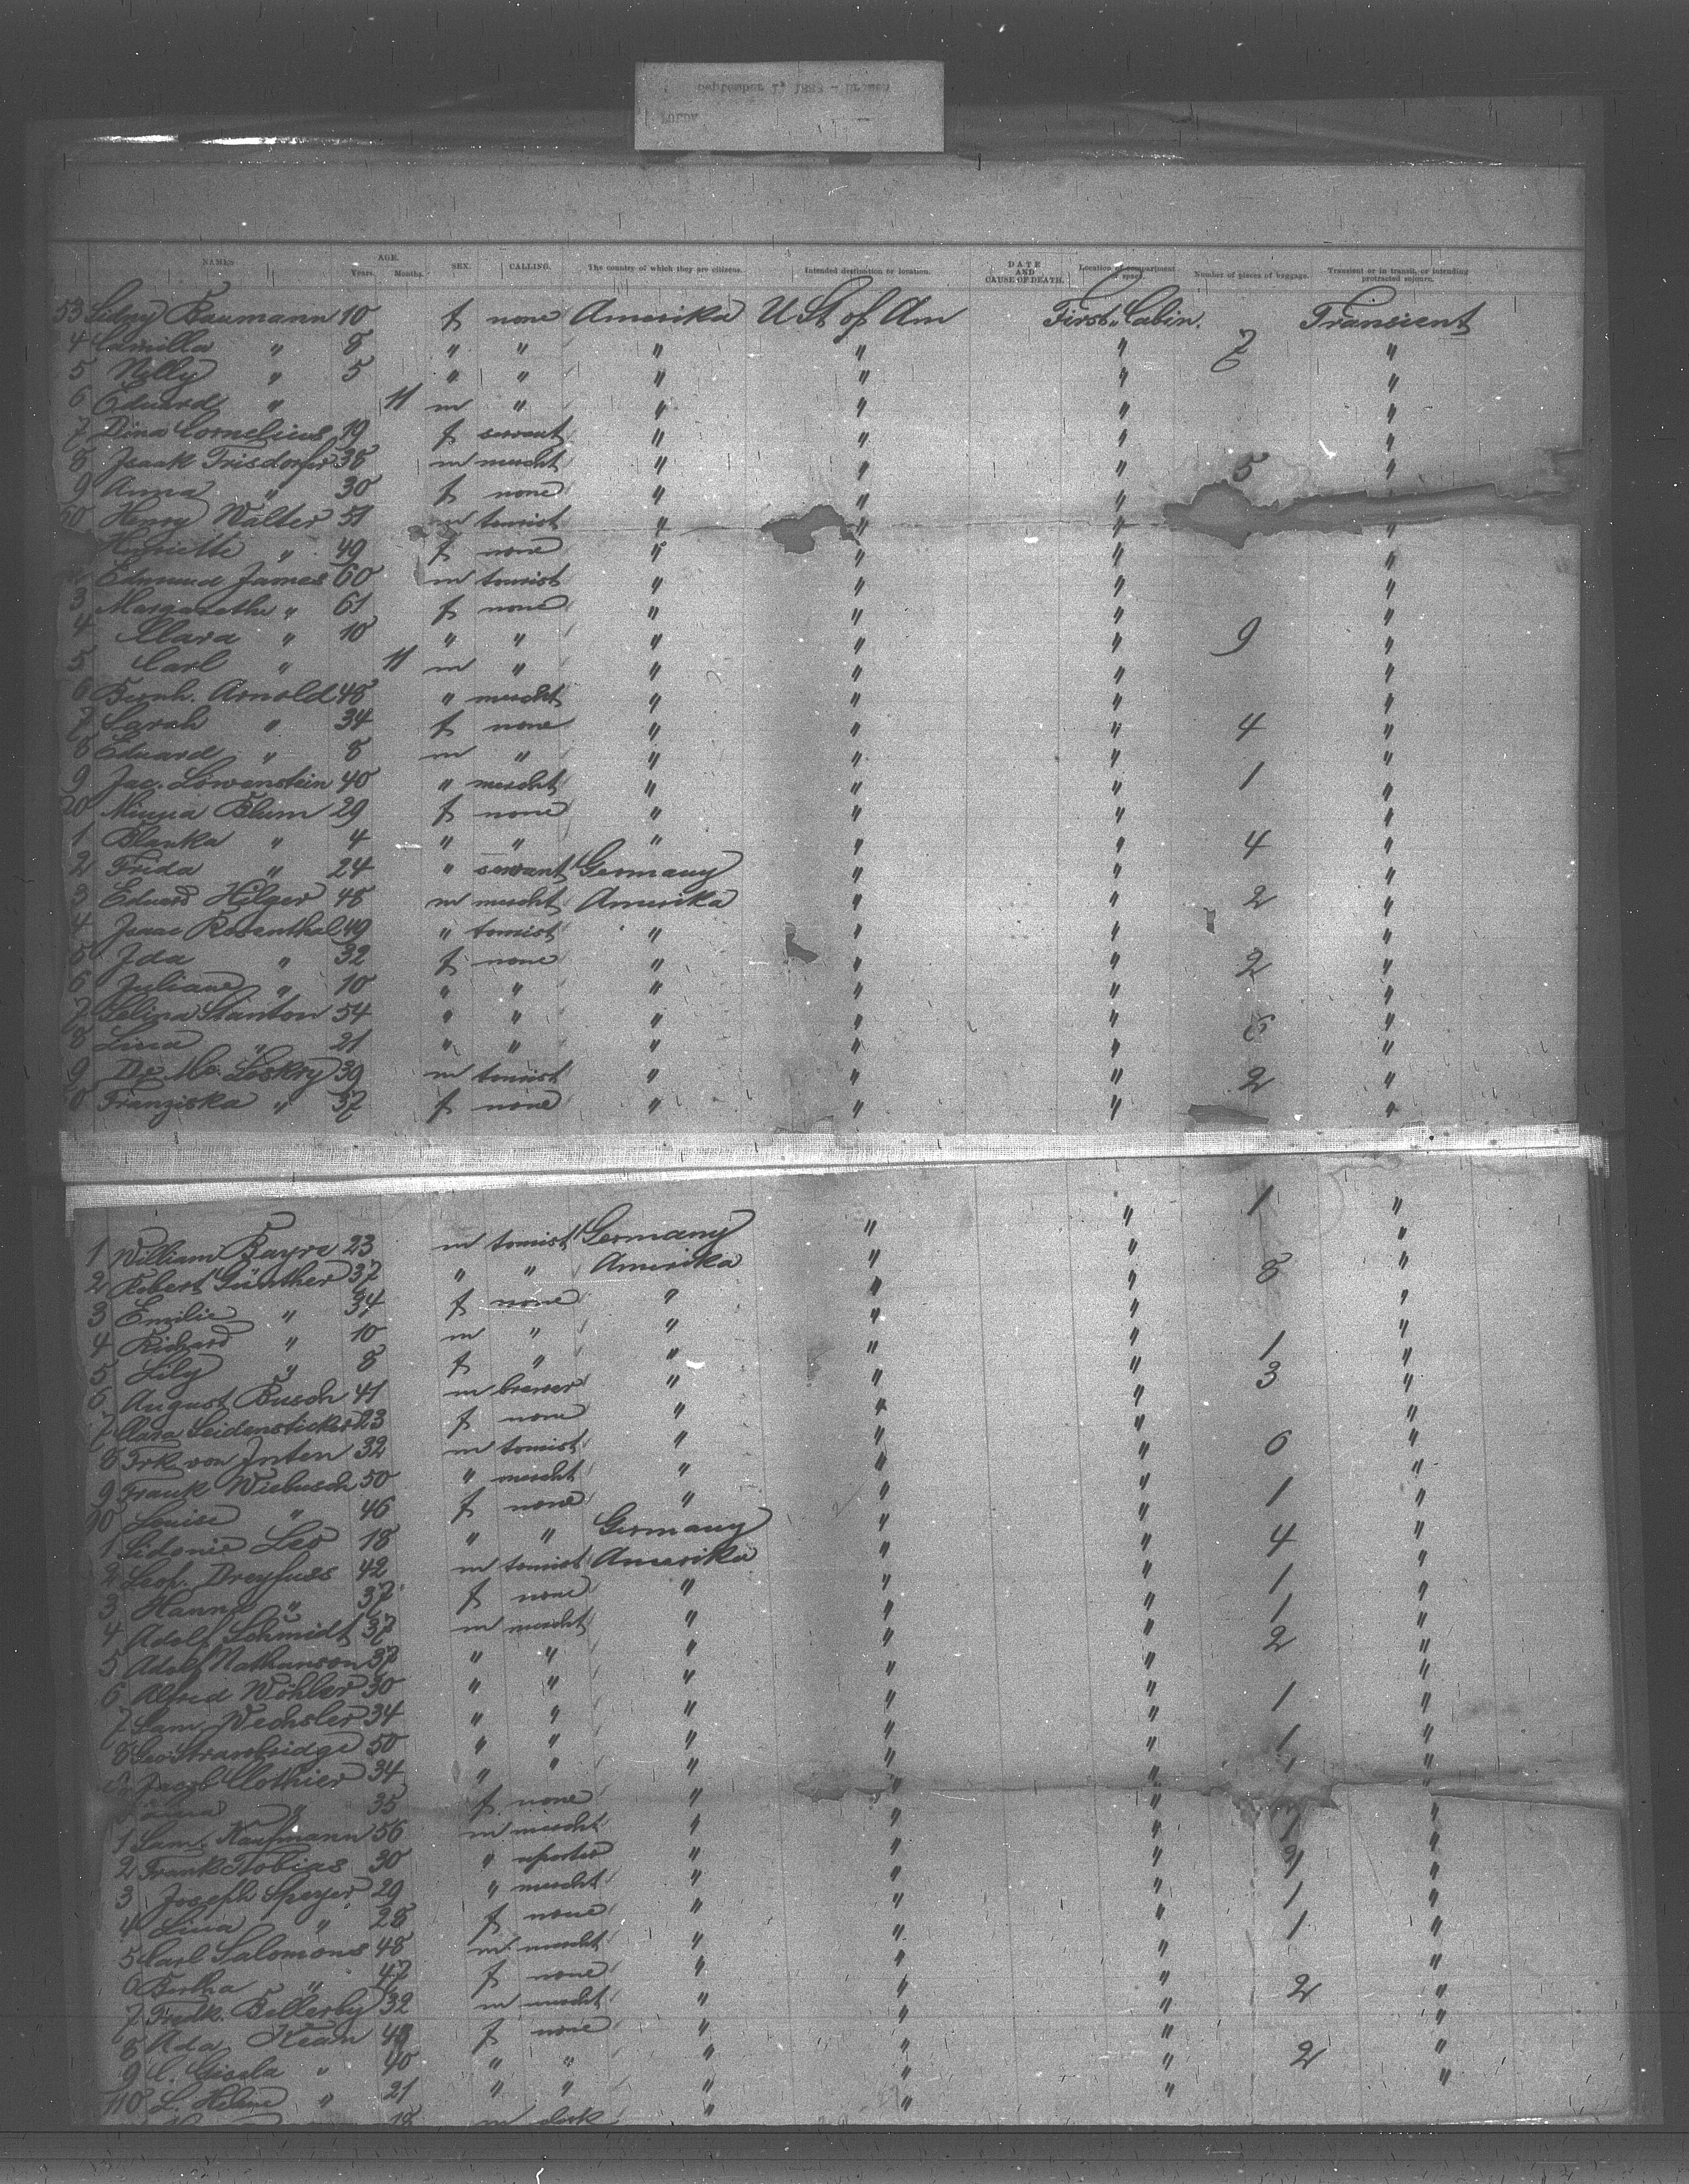 September 1, 1888 - Bremen
FULDA
NAMES AGE. Years. Months. SEX. CALLING. The country of which they are citizens. Intended destination or location. DATE AND CAUSE OF DEATH. Location of compartment or space. Number of pieces of baggage. Transient or in transit, or intending protracted sojourn.
53 Sidny Baumann 10 f none Amerika U St of Am First Cabin. Transient
4 Camilla " 8 " " " " " 7 "
5 Nelly " 5 " " " " " "
6 Eduard " 11 m " " " " "
7 Dina Cornelius 19 f servant " " " "
8 Isaak Trisdorfer 38 m mercht " " " 5 "
9 Anna " 30 f none " " " "
60 Henry Walter 51 m tourist " " " "
Henriette " 49 f none " " " "
Edmund James 60 m tourist " " " "
3 Margarethe " 61 f none " " " "
4 Clara " 10 " " " " " 9 "
5 Carl " 11 m " " " " "
6 Bernh. Arnold 48 " mercht " " " "
7 Sarah " 34 f none " " " 4 "
8 Eduard " 8 m " " " " "
9 Jac. Löwenstein 40 " mercht " " " 1 "
70 Minna Blum 29 f none " " " "
1 Blanka " 4 " " " " " 4 "
2 Frida " 24 " servant Germany " " "
3 Eduard Hilger 48 m mercht Amerika " " 2 "
4 Isaac Rosenthal 49 " tourist " " " "
5 Ida " 32 f none " " " 2 "
6 Juliane " 10 " " " " " "
7 Selina Stanton 54 " " " " " "
8 Lina " 21 " " " " " 6 "
9 De Mc. Loskry 39 m tourist " " " 2 "
0 Franziska " 37 f none " " " "
1 William Bayre 23 m tourist Germany " " 1 "
2 Robert Günther 37 " " Amerika " " "
3 Emilie " 34 f none " " " 8 "
4 Richard " 10 m " " " " "
5 Lily " 8 f " " " " "
6 August Busch 41 m brewer " " " 1 "
7 Clara Seidensticker 23 f none " " " 3 "
8 Frk. von Inten 32 m tourist " " " "
9 Frank Wiebusch 50 " mercht " " " 6 "
90 Louise " 46 f none " " " "
1 Sidonie Leo 18 " " Germany " " 1 "
2 Leop. Dreyfuss 42 m tourist Amerika " " 4 "
3 Hanna " 37 f none " " " "
4 Adolf Schmidt 37 m mercht " " " 1 "
5 Adolf Nathanson 37 " " " " " 1 "
6 Alfred Wöhler 30 " " " " " 2 "
7 Sam. Wechsler 34 " " " " " "
8 Geo Strawbridge 50 " " " " " 1 "
Jacob Clothier 34 " " " " " 1 "
35 f none " " " "
1 Sam. Kaufmann 56 m mercht " " " 1 "
2 Frank Tobias 30 " reporter " " " "
3 Joseph Speyer 29 " mercht " " " "
4 Lina " 28 f none " " " 1 "
5 Carl Salomons 48 m mercht " " " 1 "
6 Bertha " 47 f none " " " "
7 Fredk. Bellerby 32 m mercht " " " 2 "
8 Ada Kean 43 f none " " " "
9 C. Gisela " 40 " " " " " 2 "
110 L. Helene " 21 " " " " " "
18 m clerk